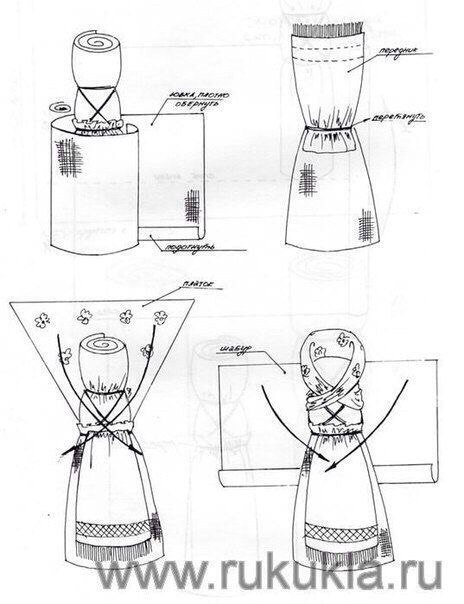 юбка, плотно
обернуть
подогнуть
передник
перетянуть
платок
шабур
www.rukukla.ru